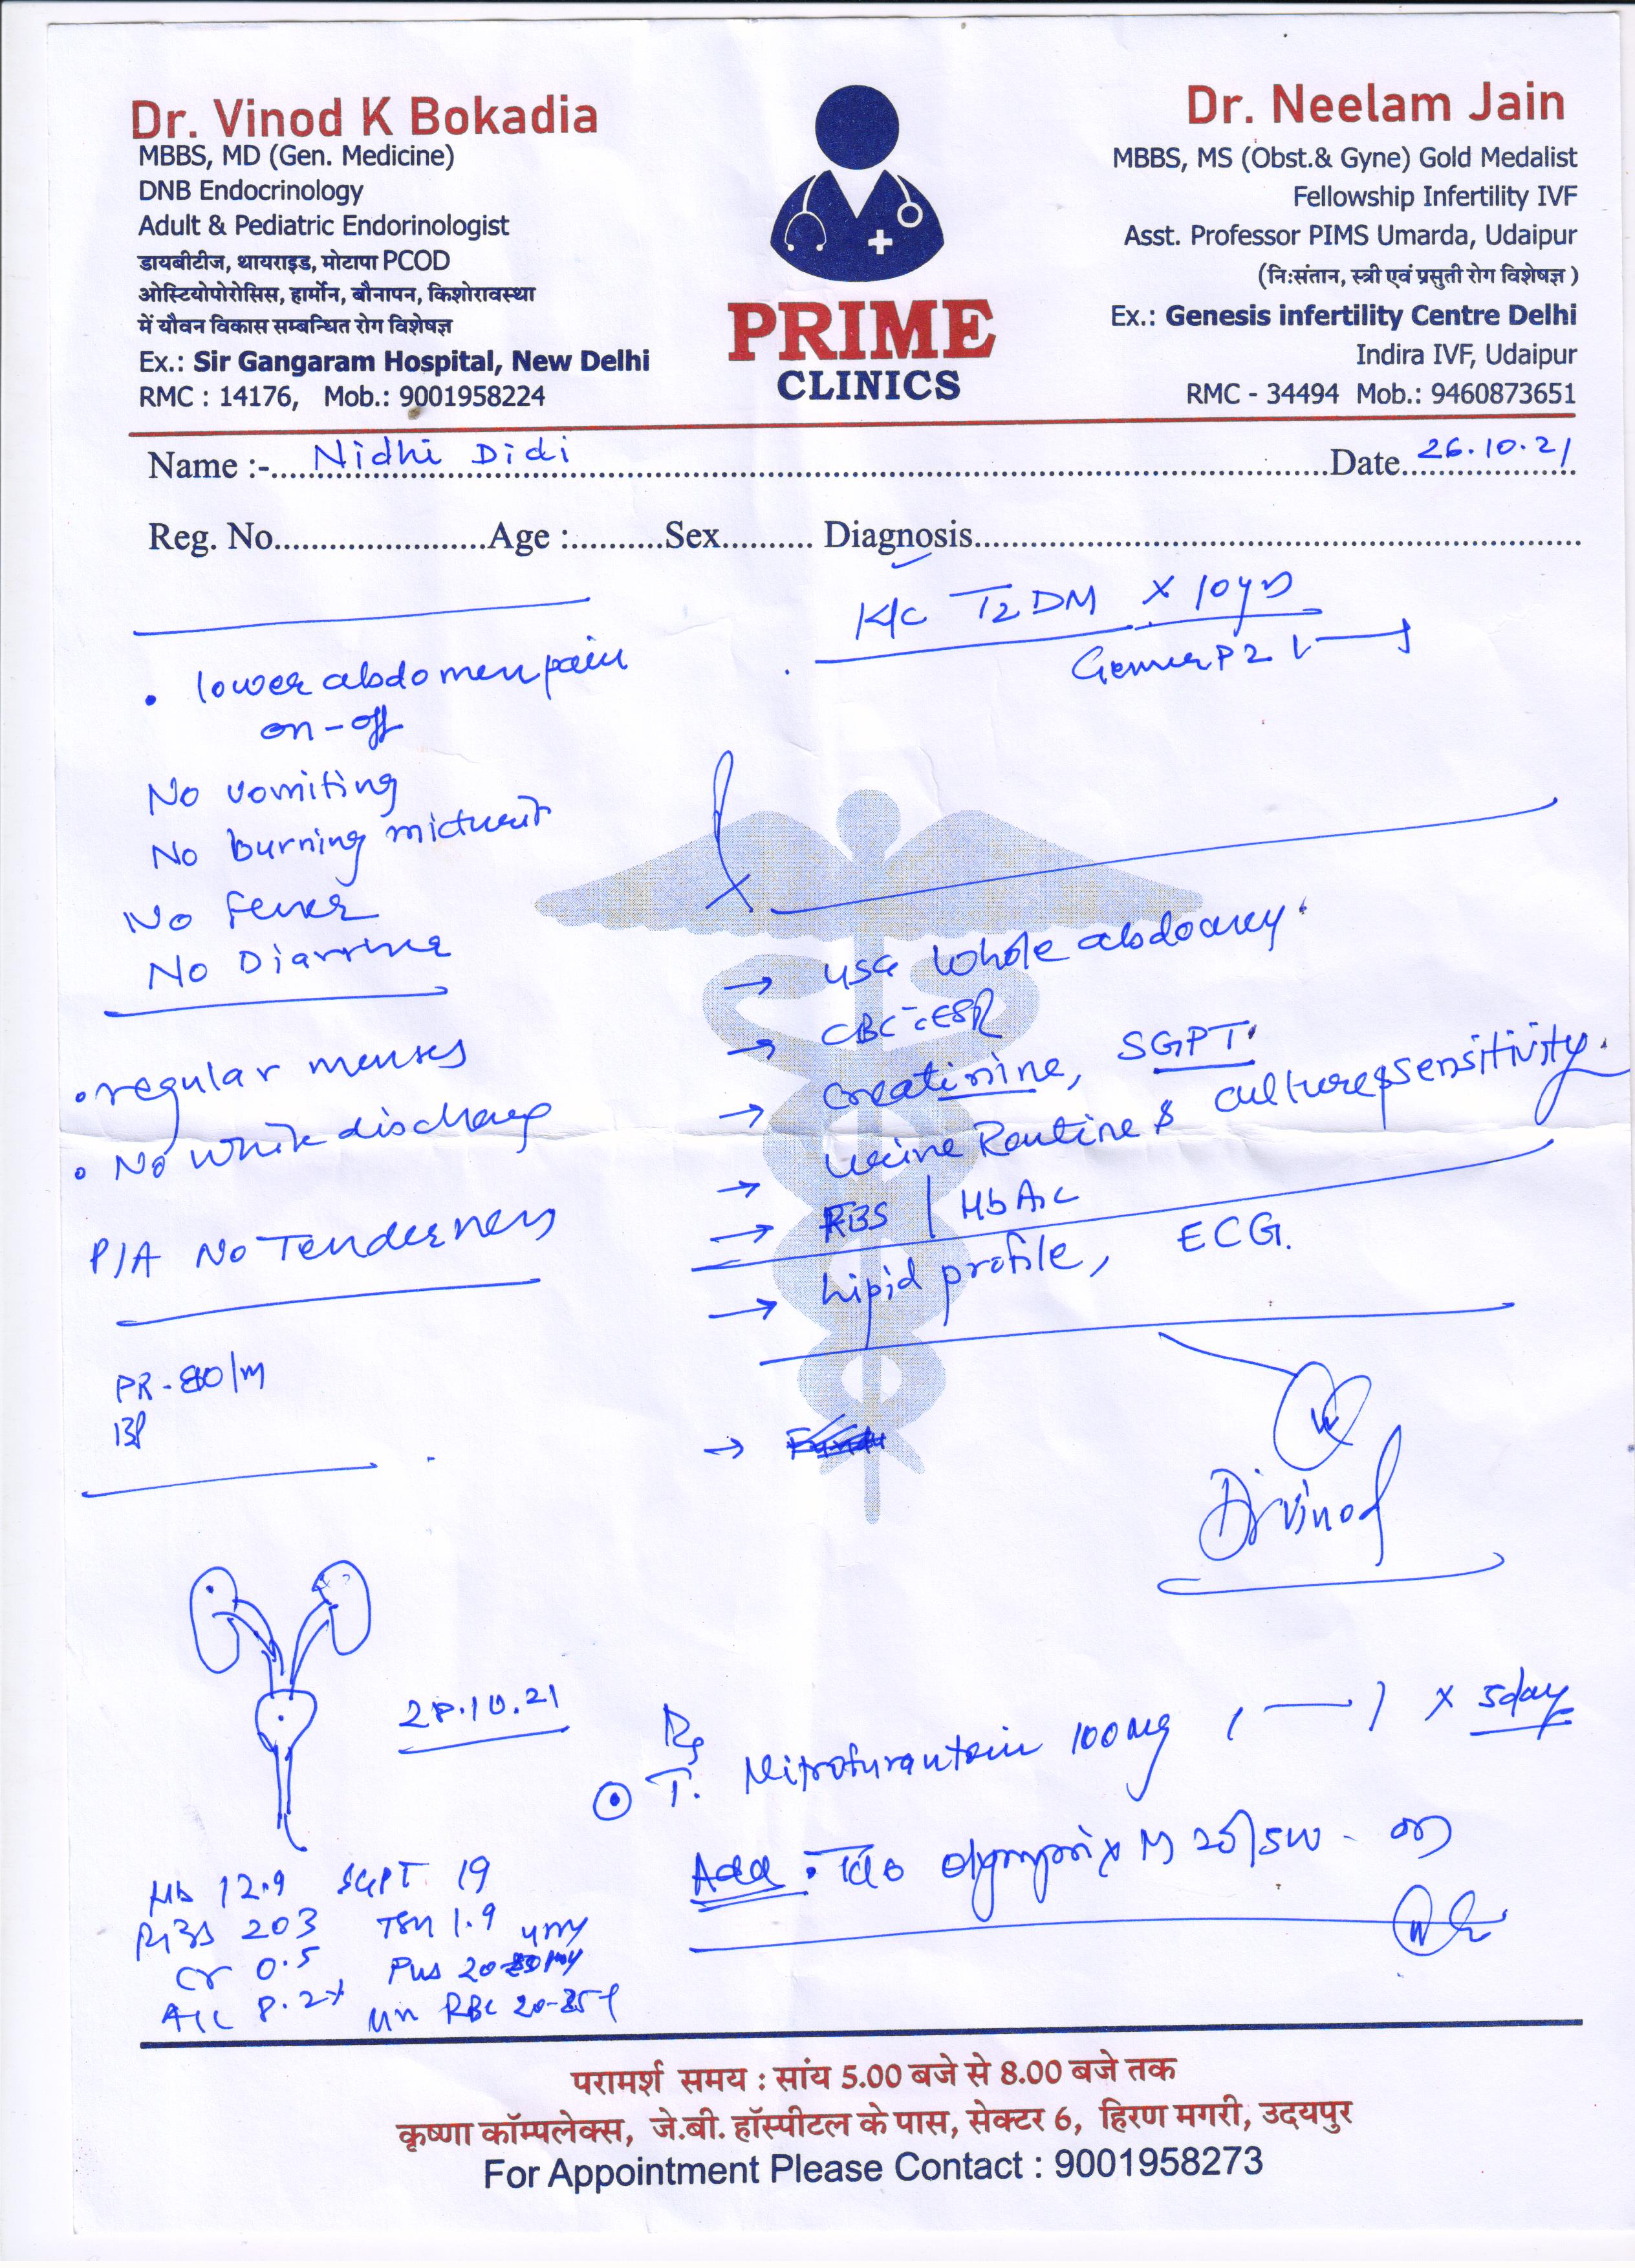 Dr. Vinod K Bokadia
MBBS, MD (Gen. Medicine)
DNB Endocrinology
Adult & Pediatric Endorinologist
डायबीटीज, थायराइड, मोटापा PCOD
ओस्टियोपोरोसिस, हार्मोन, बौनापन, किशोरावस्था
में यौवन विकास सम्बन्धित रोग विशेषज्ञ
Ex.: Sir Gangaram Hospital, New Delhi
RMC : 14176, Mob.: 9001958224
PRIME
CLINICS
Dr. Neelam Jain
MBBS, MS (Obst.& Gyne) Gold Medalist
Fellowship Infertility IVF
Asst. Professor PIMS Umarda, Udaipur
(नि:संतान, स्त्री एवं प्रसुती रोग विशेषज्ञ )
Ex.: Genesis infertility Centre Delhi
Indira IVF, Udaipur
RMC - 34494 Mob.: 9460873651
Name :- Nidhi Didi Date 26.10.21
Reg. No. Age : Sex Diagnosis
K/c T2DM x 10yrs
P2
• lower abdomen pain
on-off
No vomiting
No burning
No fever
No Diarrhea
• regular menses
• No white discharg
P/A No Tenderness
PR - 80/m
BP
→ USG Whole
→ CBC ESR
→ Creatinine, SGPT
→ Urine Routine & culture & sensitivity.
→ RBS | HbA1c
→ Lipid profile, ECG.
→
Dr Vinod
28.10.21
Rx
T. Nitrofurantoin 100mg ( — ) x 5day
Add
Hb 12.9 SGPT 19
RBS 203 TSH 1.9
Cr 0.5 Pus
A1C 8.2 RBC
परामर्श समय : सांय 5.00 बजे से 8.00 बजे तक
कृष्णा कॉम्पलेक्स, जे.बी. हॉस्पीटल के पास, सेक्टर 6, हिरण मगरी, उदयपुर
For Appointment Please Contact : 9001958273